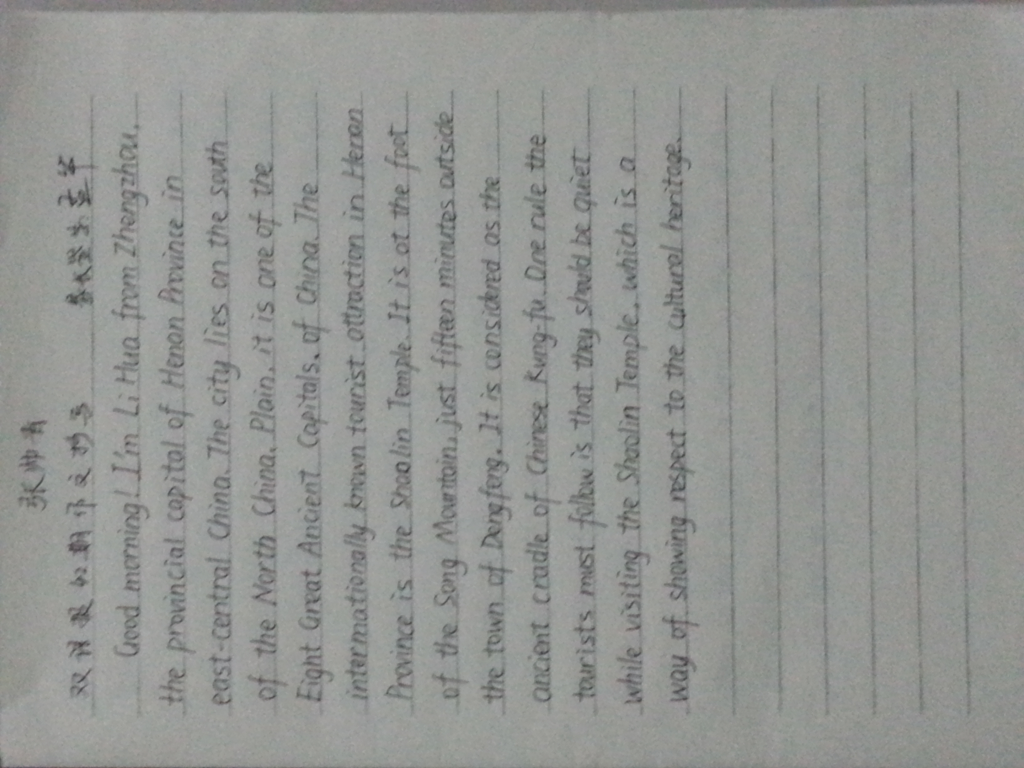 张帅芳
双词曼 期 文抄写
Good morning! I'm Li Hua from Zhengzhou,
the provincial capital of Henan Province in
east-central China. The city lies on the south
of the North China. Plain. it is one of the
Eight Great Ancient Capitals. of China. The
internationally known tourist attraction in Henan
Province is the Shaolin Temple. It is at the foot
of the Song Mountain, just fifteen minutes outside
the town of Dengfeng. It is considered as the
ancient cradle of Chinese Kung-fu. One rule the
tourists must follow is that they should be quiet
while visiting the Shaolin Temple. which is a
way of showing respect to the cultural heritage.